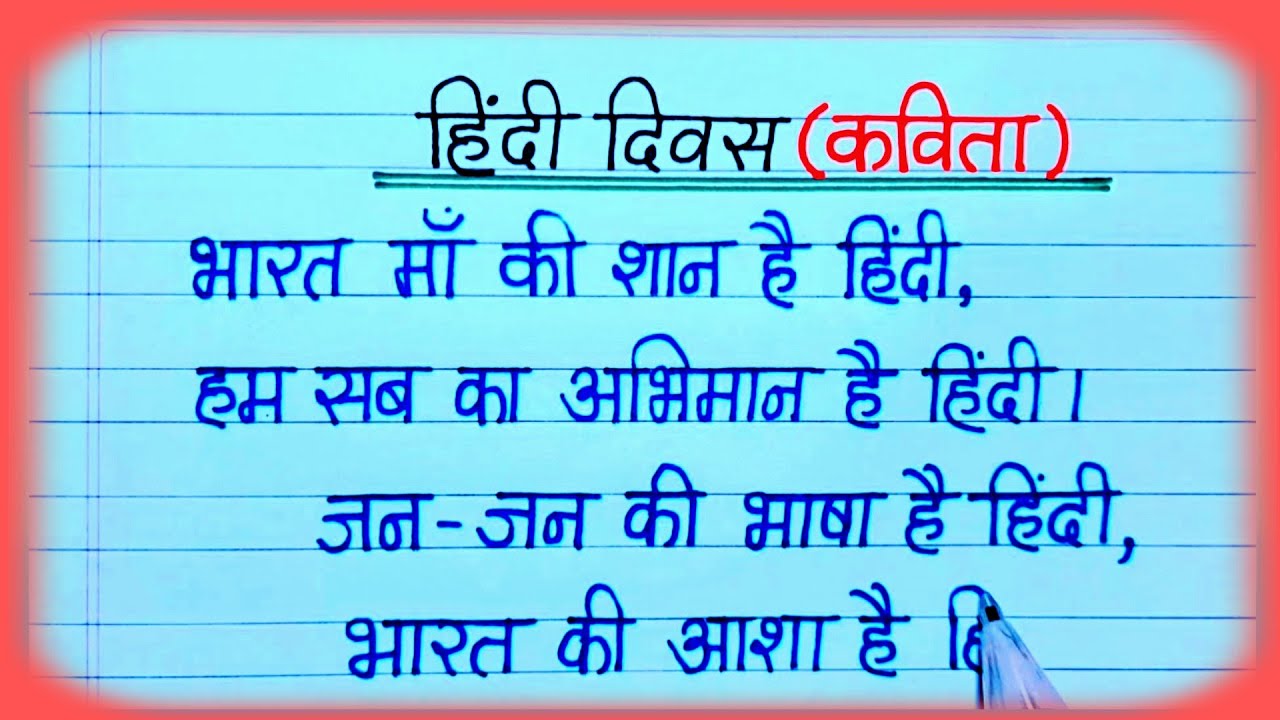 हिंदी दिवस (कविता)
भारत माँ की शान है हिंदी,
हम सब का अभिमान है हिंदी।
जन-जन की भाषा है हिंदी,
भारत की आशा है हि